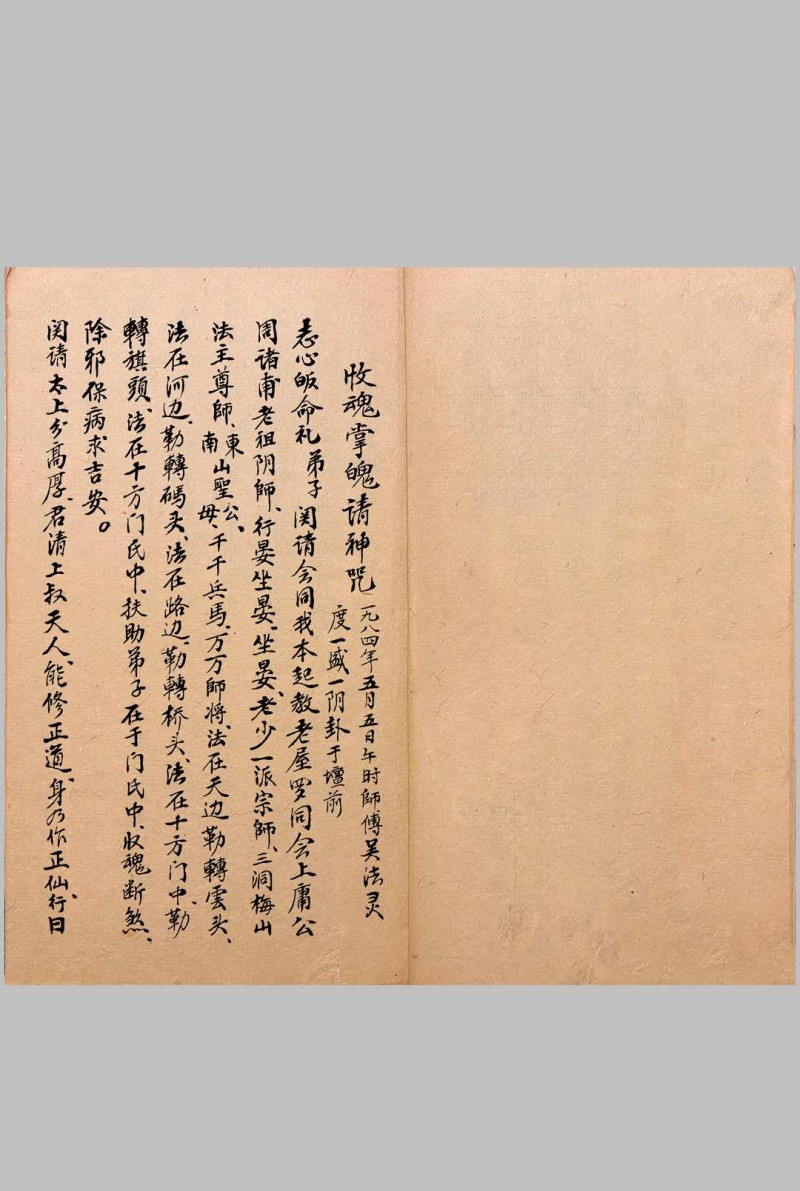 收魂掌魄请神咒
一九八四年五月五日午时師傅吴法灵
度一盛一阴卦于壇前
志心皈命礼 弟子関请会同我本起教老屋罗同会上庸公
周诸甫老祖阴師、行晏坐晏、坐晏、老少一派宗師、三洞梅山
法主尊師、東山聖公、南山聖母、千千兵馬、万万師将、法在天边勒轉雲头、
法在河边、勒轉碼头、法在路边、勒轉桥头、法在十方门中、勒
轉旗頭、法在十方门氏中、扶助弟子在于门氏中、收魂断煞、
除邪保病求吉安。
関请太上分高厚、君清上叔天人、能修正道、身乃作正仙、行日